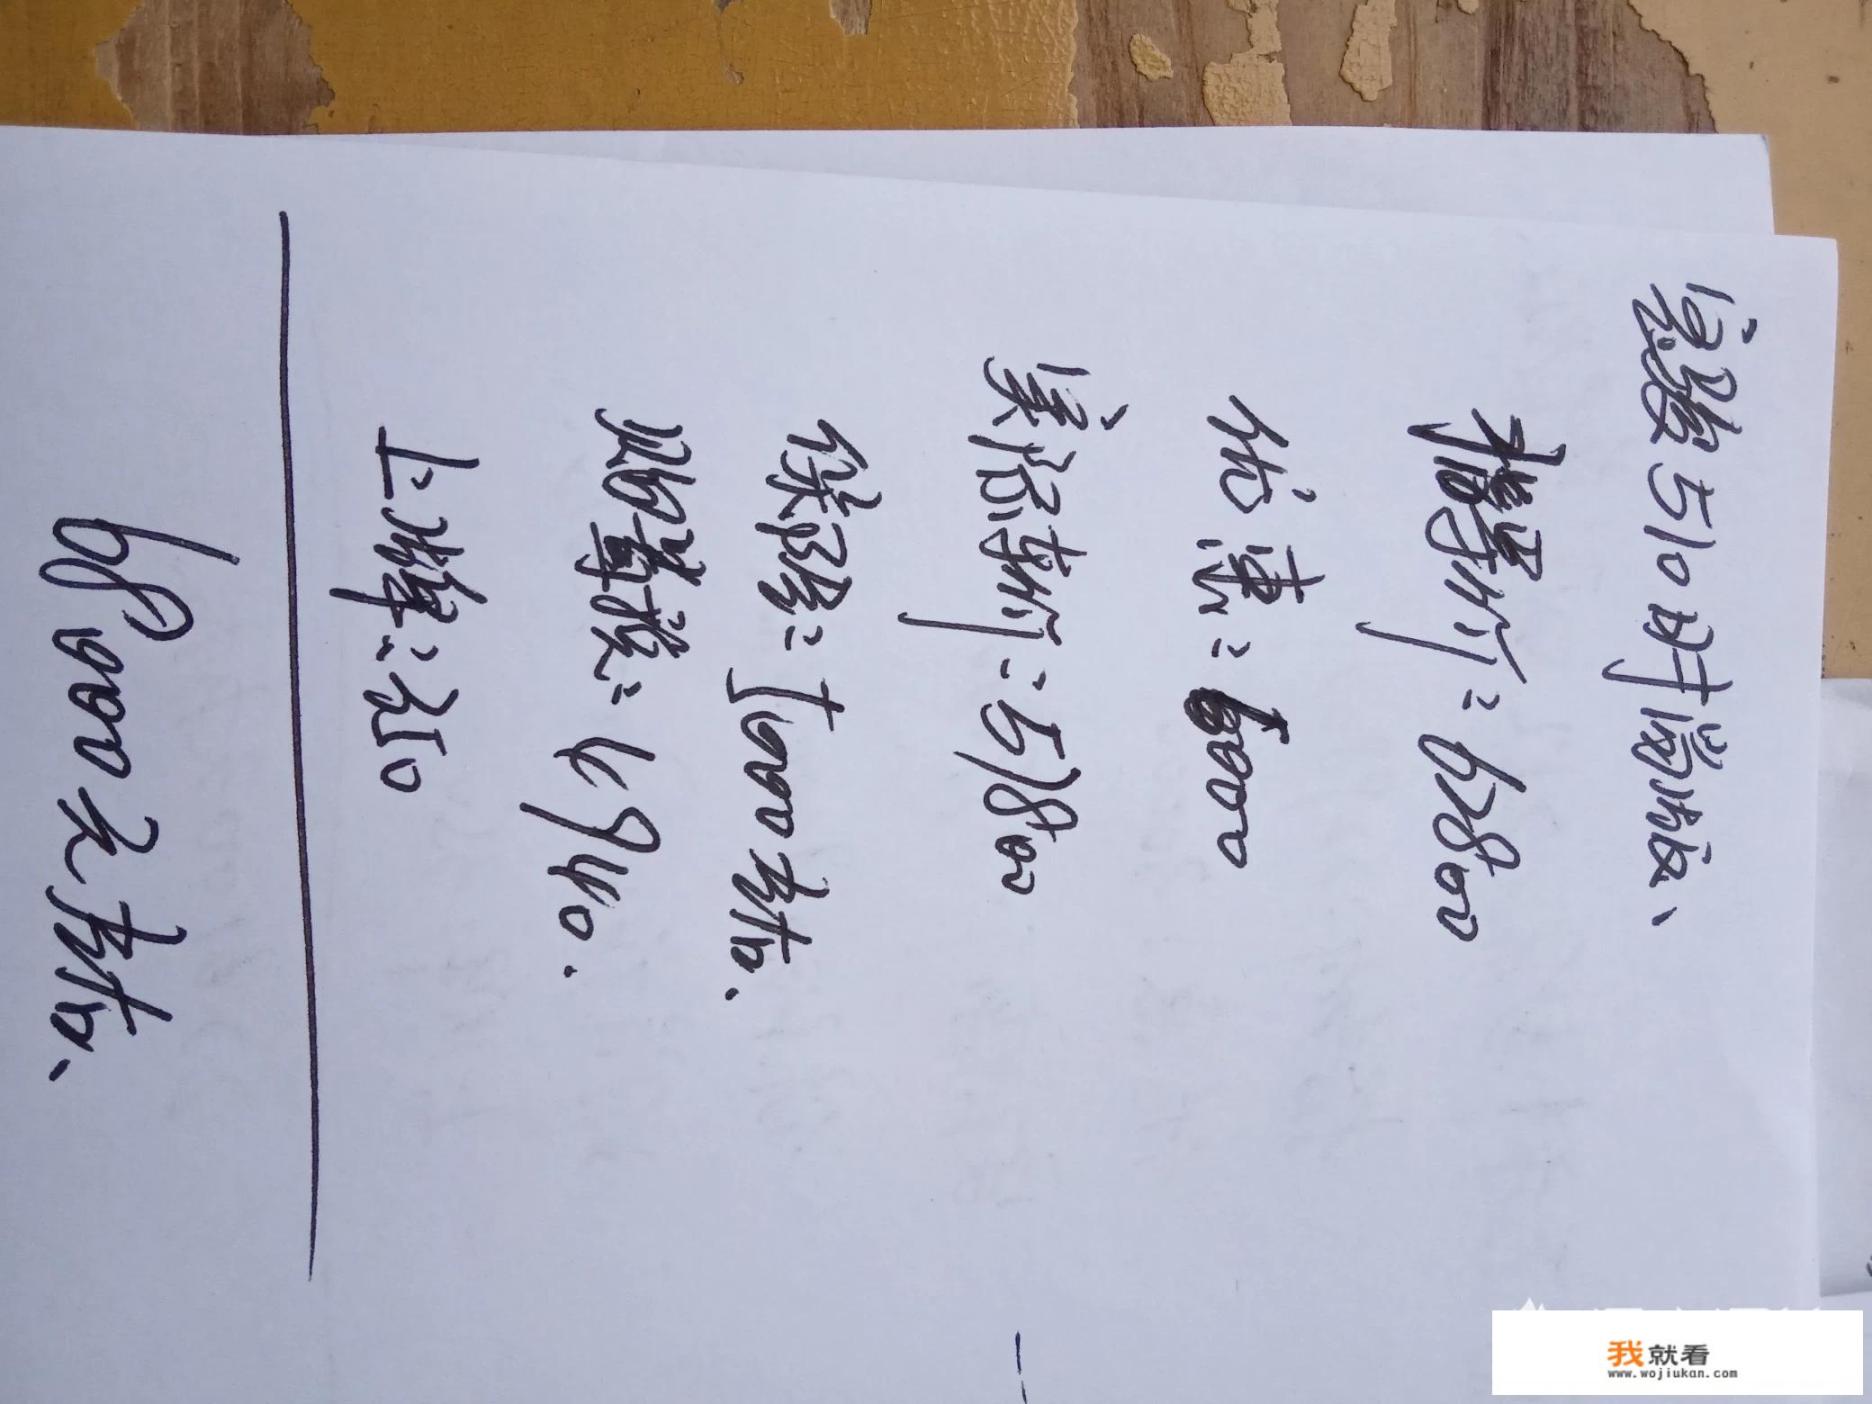 宝骏510时尚版、
指导价：62800
优惠：6000
实际车价：56800
保险：5000左右、
购置税：4940.
上牌：250
68000元左右、
我就看
www.wojiukan.com